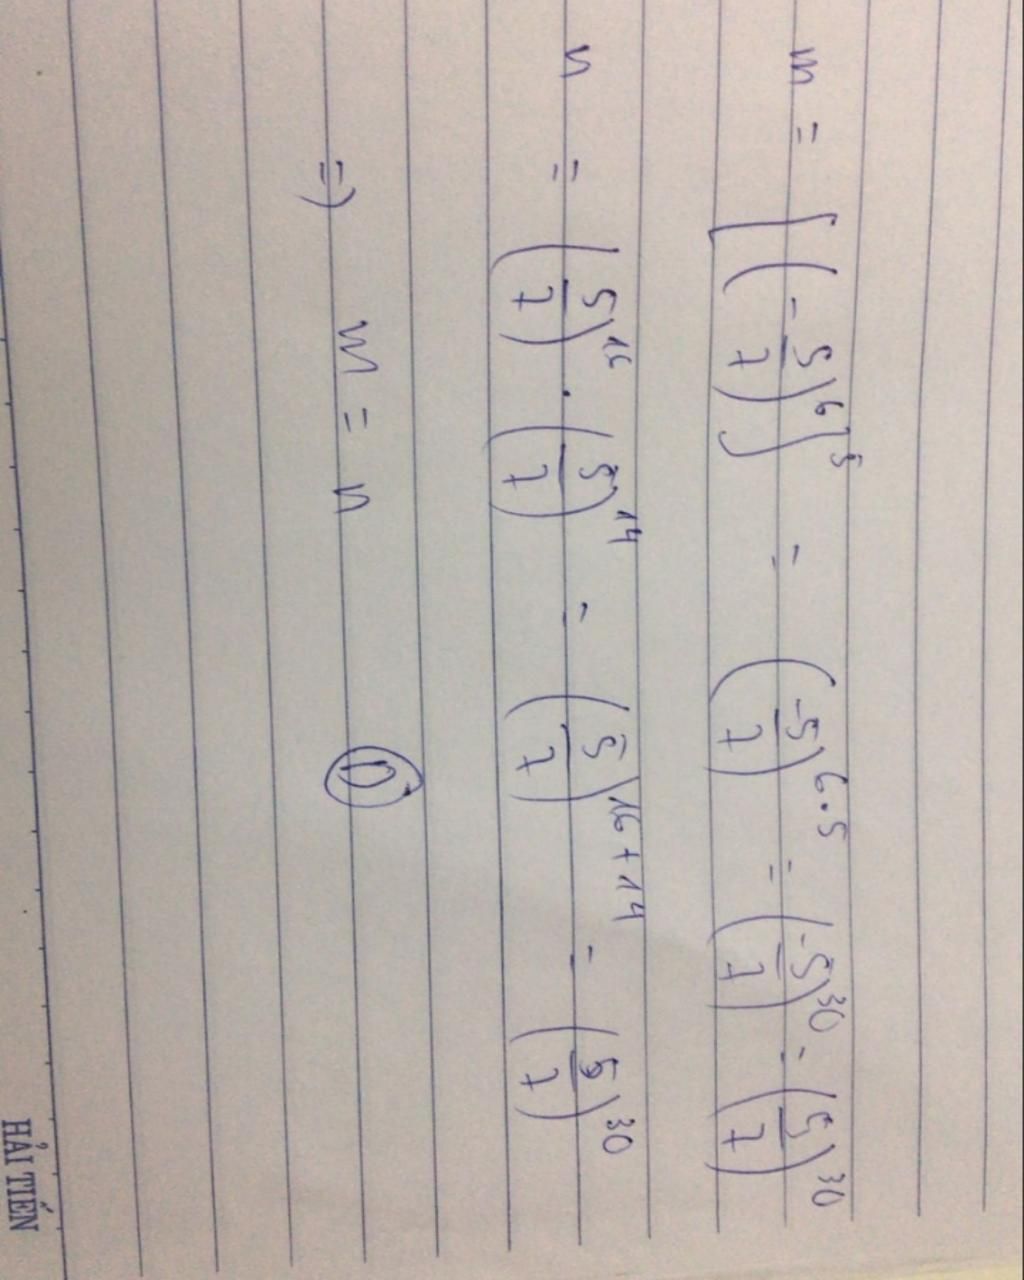 m = [(-5/7)^6]^5 = (-5/7)^{6.5} = (-5/7)^{30} = (5/7)^{30}
n = (5/7)^{16} . (5/7)^{14} = (5/7)^{16+14} = (5/7)^{30}
=) m = n D
HẢI TIẾN